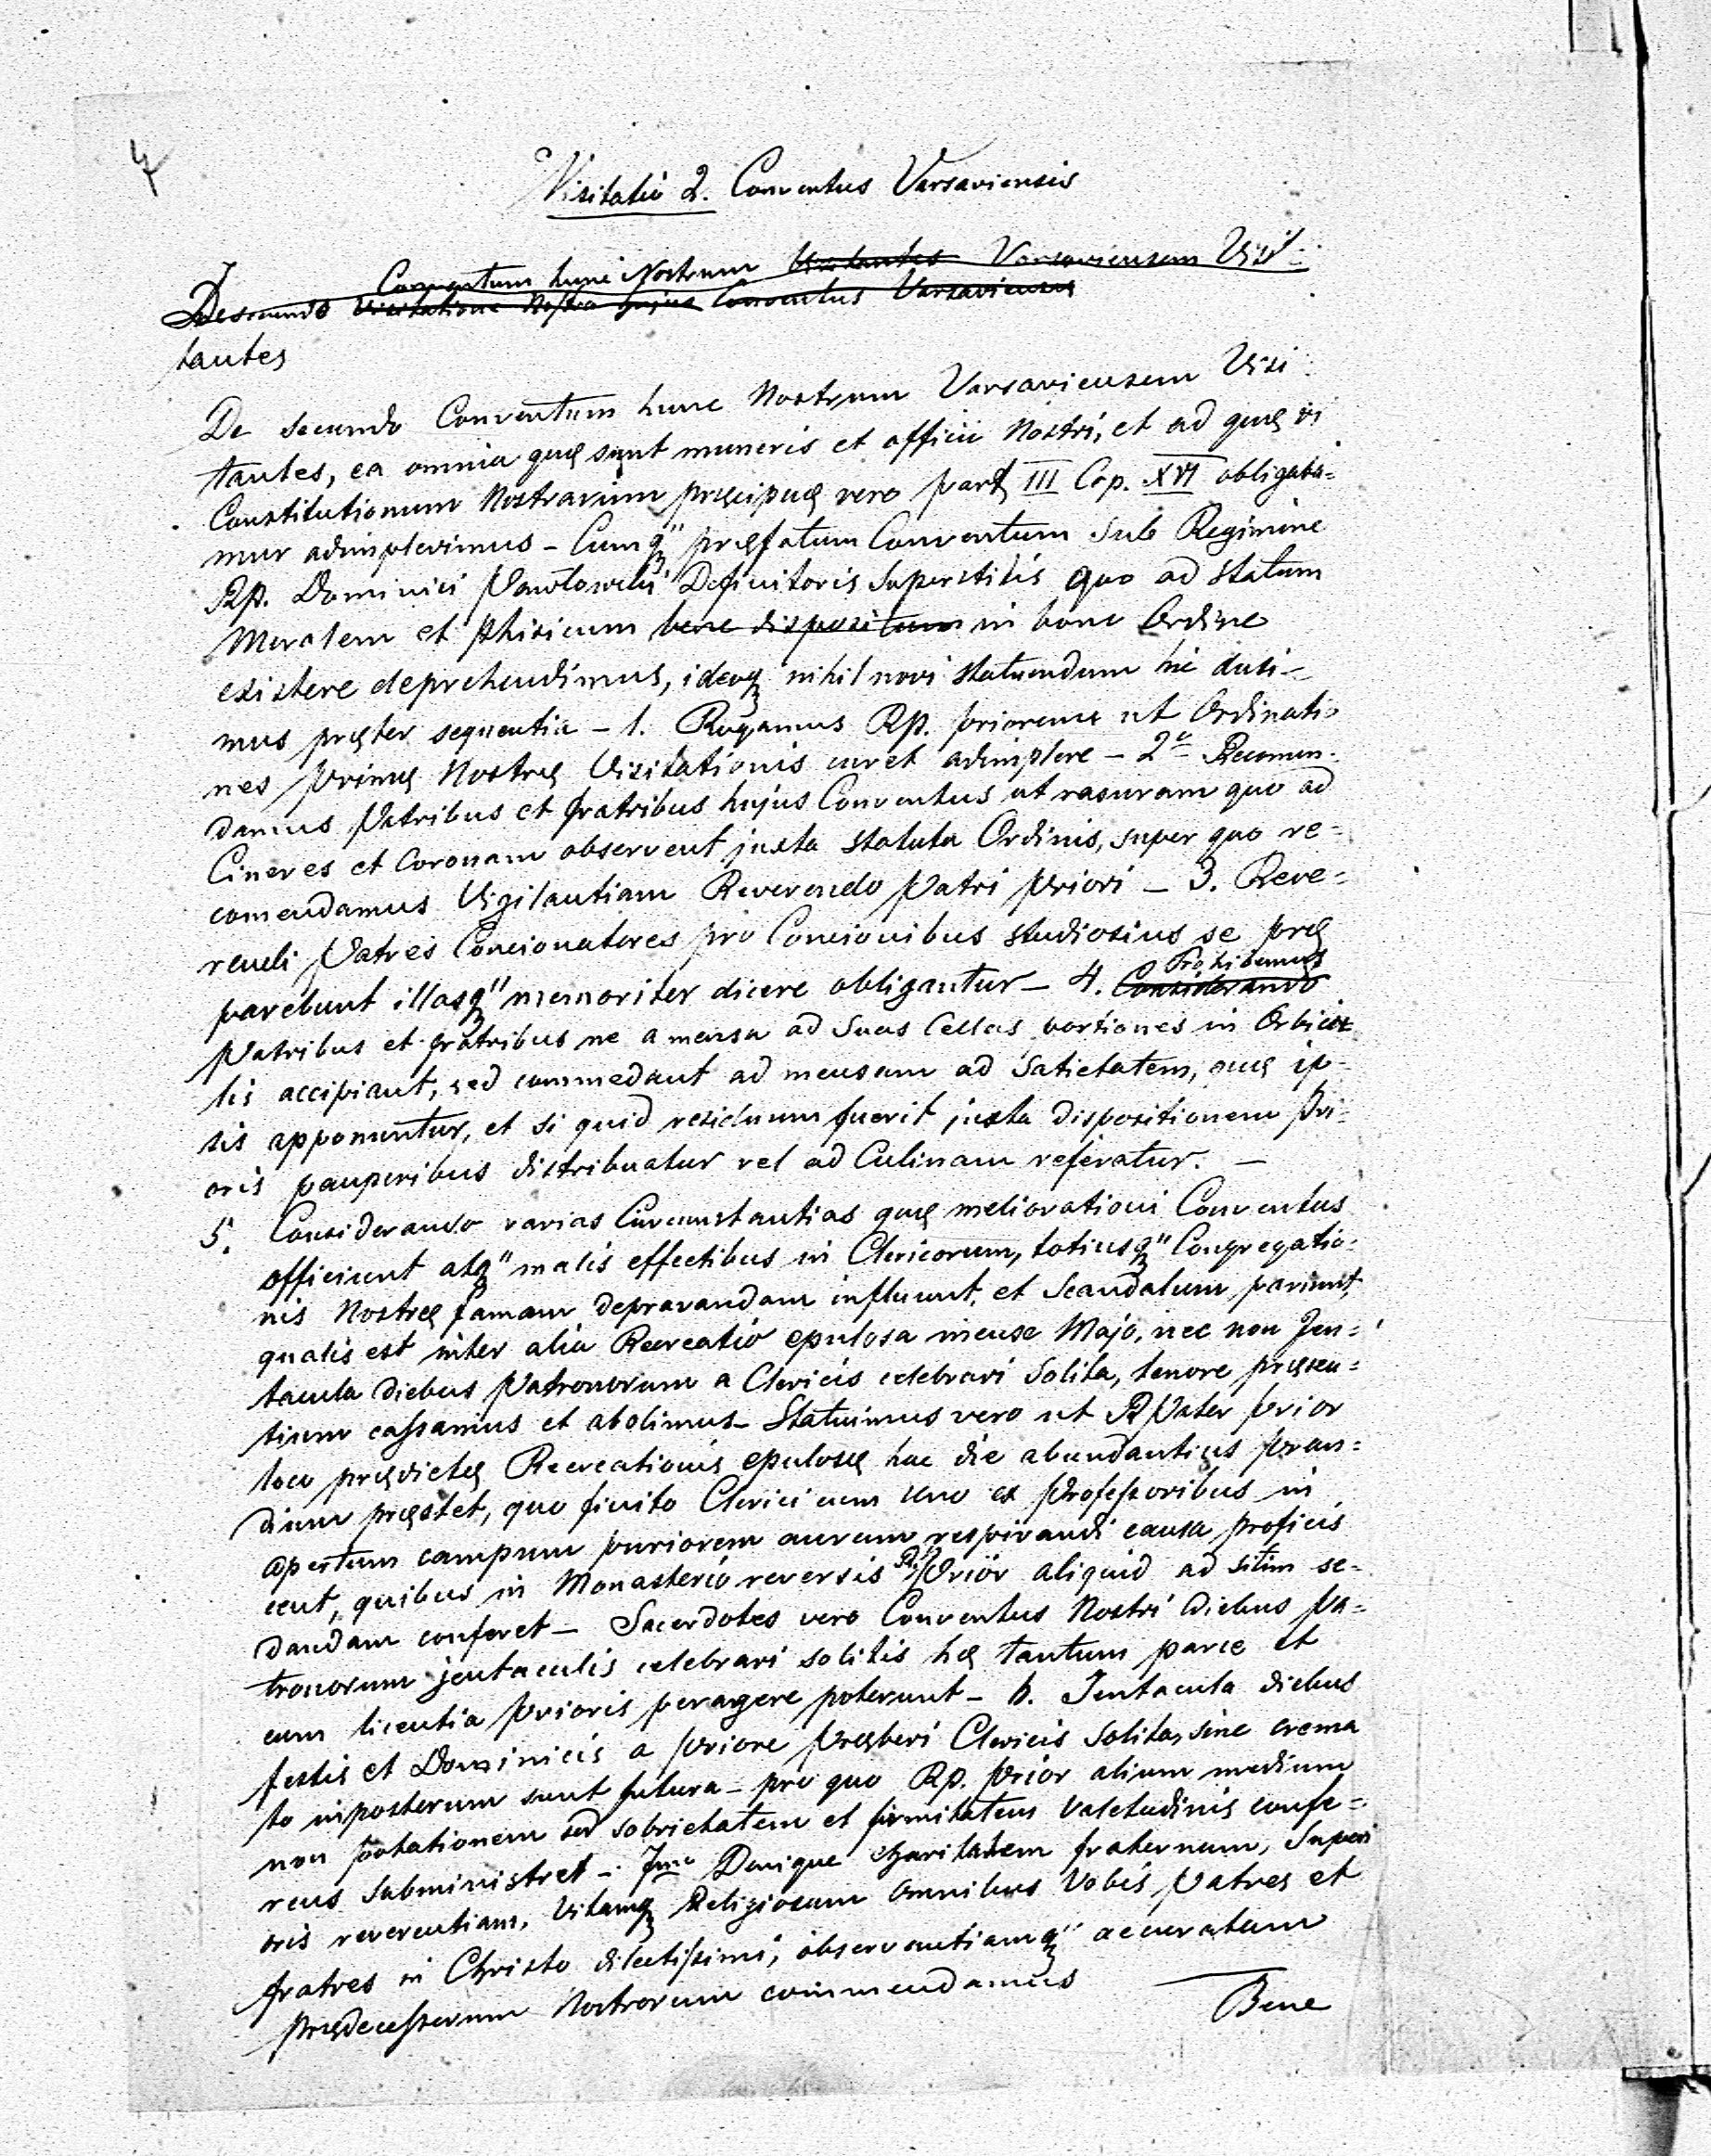 4
Visitatio 2. Conventus Varsaviensis
Conventum hunc Nostrum Visitantes Varsaviensem Visi=
De secundo Visitatione Nostra hujus Conventus Varsaviensis
tantes
De secundo Conventum hunc Nostrum Varsaviensem Visi
tantes, ea omnia quę sunt muneris et officii Nostri, et ad quę vi
Constitutionum Nostrarum pręcipuę vero part III Cap. XVI obligaba=
mur adimplevimus – Cumq" pręfatum Conventum sub Regimine
Rp. Dominici Pawłowski Definitoris Superstitis quo ad statum
Moralem et phisicum bene dispositum in bono Ordine
existere deprehendimus, ideoq nihil novi statuendum hic duxi–
mus pręter sequentia – 1. Rogamus Rp. priorem ut Ordinatio
nes primę Nostrę Visitationis curet adimplere – 2º Recomen=
damus Patribus et fratribus hujus Conventus ut rasuram quo ad
Cineres et Coronam observent juxta statuta Ordinis, super quo re=
comendamus Vigilantiam Reverendo Patri Priori – 3. Reve=
rendi Patres Concionatores pro Concionibus studiosius se prę
parebunt illasq" memoriter dicere obligantur – 4. Considerando
Prohibemus
Patribus et fratribus ne a mensa ad suas Cellas portiones in Orbicu
lis accipiant, sed commedant ad mensam ad satietatem, quę ip=
sis apponuntur, et si quid residuum fuerit juxta dispositionem Pri=
oris pauperibus distribuatur vel ad Culinam referatur. –
5. Considerando varias Circumstantias quę meliorationi Conventus
officiunt atq" malis effectibus in Clericorum, totiusq" Congregatio=
nis Nostrę famam depravandam influunt, et Scandalum pariunt,
qualis est inter alia Recreatio epulosa mense Majo, nec non Jen=
tacula diebus Patronorum a Clericis celebrari Solita, tenore pręsen=
tium cassamus et abolimus – Statuimus vero ut R Pater Prior
loco prędictę Recreationis epulosę hac die abundantius pran=
dium pręstet, quo finito Clerici cum uno ex Professoribus in
apertum campum puriorem aurum respirandi causa proficis
cent, quibus in Monasterio reversis R. P. Prior aliquid ad sitim se=
dandam conferet – Sacerdotes vero Conventus Nostri diebus Pa=
tronorum jentaculis celebrari solitis hę tantum parce et
cum licentia Prioris peragere poterunt – 6. Jentacula diebus
festis et Dominicis a Priore Pręberi Clericis Solita, sine crema
to inposterum sunt futura – pro quo Rp. Prior alium medium
non potationem sed sobrietatem et firmitatem Valetudinis confe=
rens subministret – 7mo Denique charitatem fraternam, Superi
oris reverentiam, Vitamq Religiosam omnibus Vobis Patres et
fratres in Christo dilectissimi, observantiamq" accuratam
prędecessorum Nostrorum commendamus
Bene